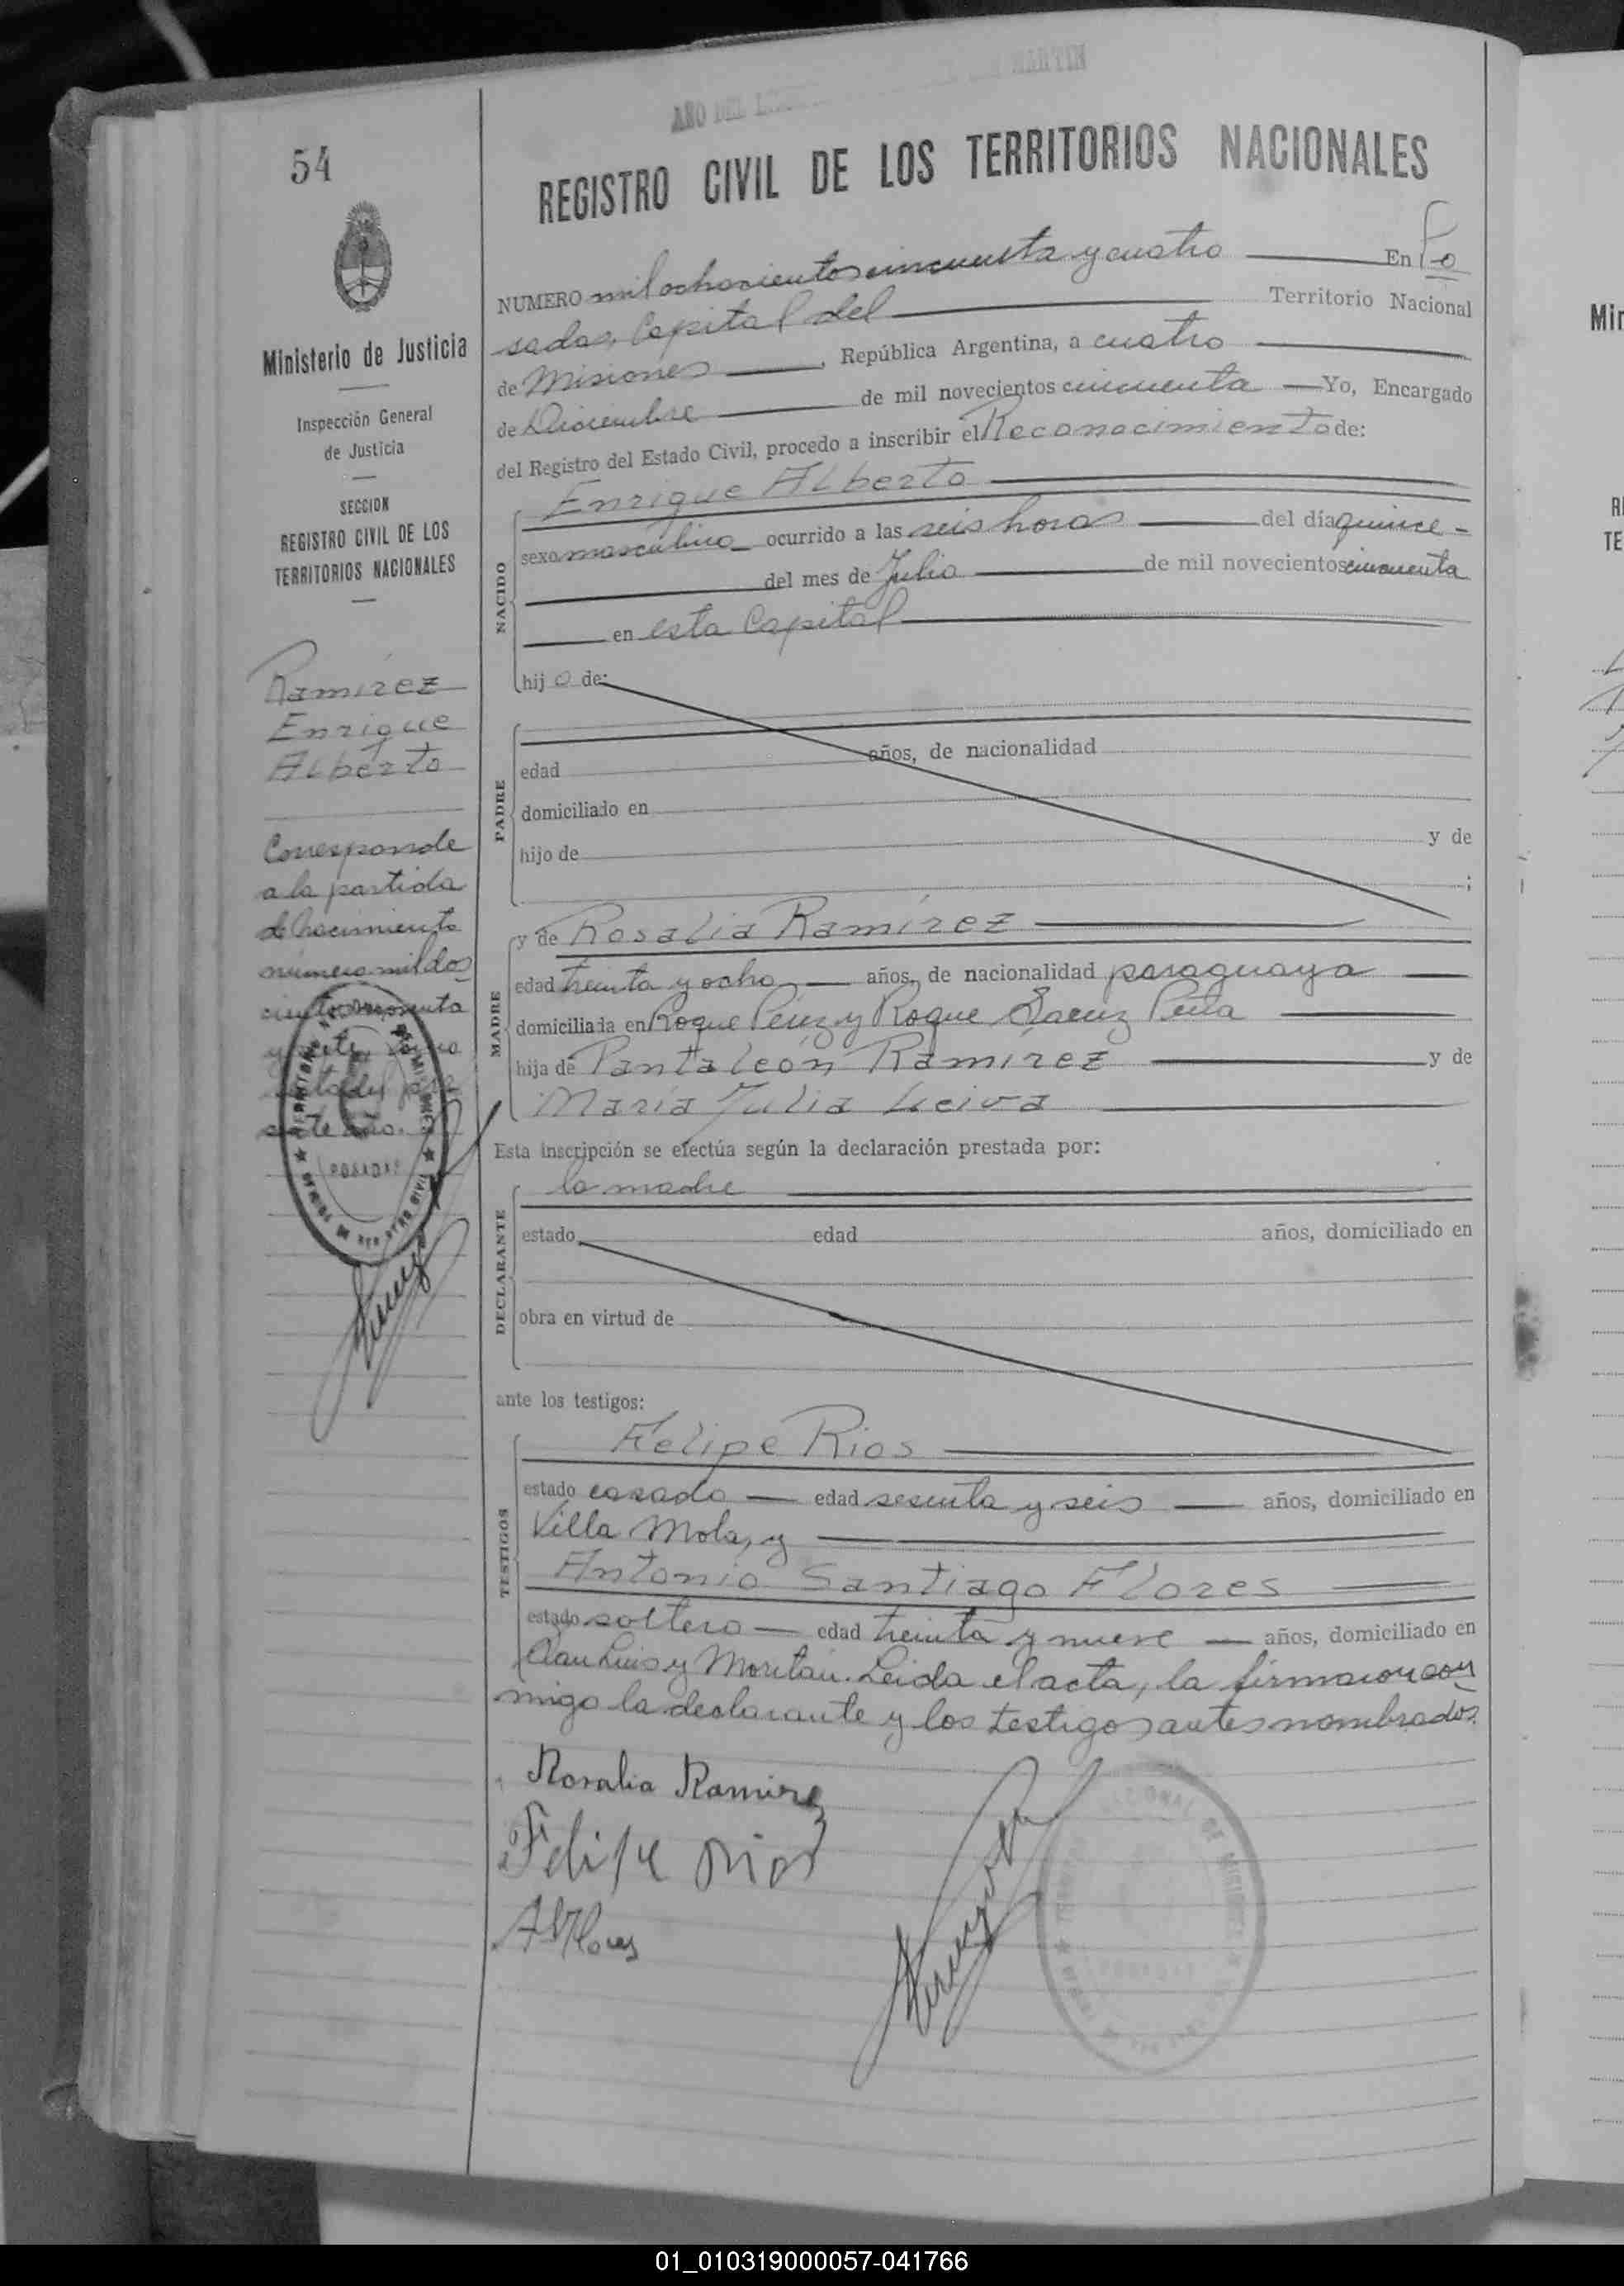 AÑO DEL MARTIN
54
REGISTRO CIVIL DE LOS TERRITORIOS NACIONALES
Ministerio de Justicia
Inspección General
de Justicia
SECCION
REGISTRO CIVIL DE LOS
TERRITORIOS NACIONALES
Ramírez
Enrique
Alberto
Corresponde
a la partida
de Nacimiento
número mil dos
POSADAS
NUMERO mil ochocientos cincuenta y cuatro En Po
sadas, Capital del Territorio Nacional
de Misiones, República Argentina, a cuatro
de Diciembre de mil novecientos cincuenta Yo, Encargado
del Registro del Estado Civil, procedo a inscribir el Reconocimiento de:
Enrique Alberto
NACIDO
sexo masculino ocurrido a las seis horas del día quince -
del mes de Julio de mil novecientos cincuenta
en esta Capital
hijo de:
PADRE
edad años, de nacionalidad
domiciliado en
hijo de y de
;
MADRE
y de Rosalia Ramírez
edad treinta y ocho años, de nacionalidad paraguaya
domiciliada en Roque Pérez y Roque Saenz Peña
hija de Pantaleón Ramírez y de
María Julia Leiva
Esta inscripción se efectúa según la declaración prestada por:
la madre
DECLARANTE
estado edad años, domiciliado en
obra en virtud de
ante los testigos:
Felipe Rios
TESTIGOS
estado casado edad sesenta y seis años, domiciliado en
Villa Mola, y
Antonio Santiago Flores
estado soltero edad treinta y nueve años, domiciliado en
San Luis y Moritan. Leida el acta, la firmaron con
migo la declarante y los testigos antes nombrados.
Rosalia Ramirez
Felipe Rios
Flores
01_010319000057-041766